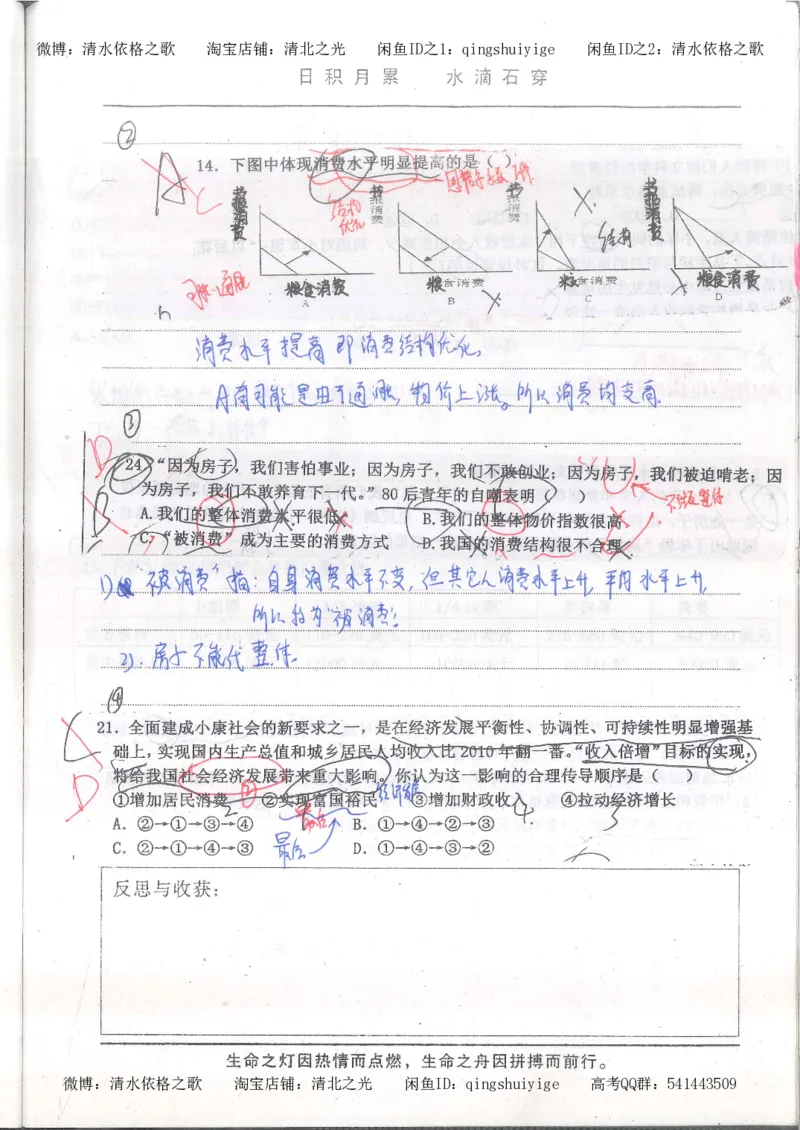 微博：清水依格之歌 淘宝店铺：清北之光 闲鱼ID之1：qingshuiyige 闲鱼ID之2：清水依格之歌
日积月累 水滴石穿
②
14．下图中体现消费水平明显提高的是（ ）
A
结构优化
结构
粮食消费 粮食消费 粮食消费 粮食消费
A B C D
消费水平提高即消费结构优化,
A有可能是由于通胀,物价上涨。所以消费均变高.
③
B
24．“因为房子，我们害怕事业；因为房子，我们不敢创业；因为房子，我们被迫啃老；因
为房子，我们不敢养育下一代。”80后青年的自嘲表明（ ）
不能整体
B
A.我们的整体消费水平很低 B.我们的整体物价指数很高
C.“被消费”成为主要的消费方式 D.我国的消费结构很不合理
1) “被消费”指:自身消费水平不变,但其它人消费水平上升,平均水平上升,
所以称为“被消费”.
2). 房子不能代整体.
④
C
D
21．全面建成小康社会的新要求之一，是在经济发展平衡性、协调性、可持续性明显增强基
础上，实现国内生产总值和城乡居民人均收入比2010年翻一番。“收入倍增”目标的实现，
将给我国社会经济发展带来重大影响。你认为这一影响的合理传导顺序是（ ）
①增加居民消费 ②实现富国裕民 ③增加财政收入 ④拉动经济增长
最后
A．②→①→③→④ B．①→④→②→③
C．②→①→④→③ D．①→④→③→②
最后
反思与收获：
生命之灯因热情而点燃，生命之舟因拼搏而前行。
微博：清水依格之歌 淘宝店铺：清北之光 闲鱼ID：qingshuiyige 高考QQ群：541443509